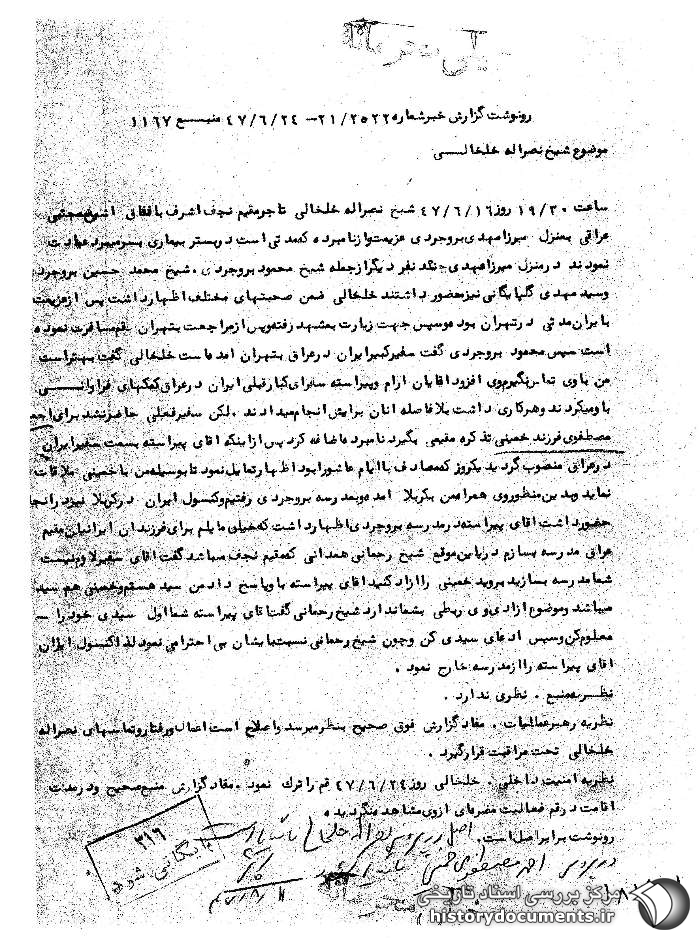 رونوشت گزارش خبر شماره ۲۱/۲۵۲۲ – ۴۷/۶/۲۴ منبع ۱۱۶۷
موضوع شیخ نصراله خلخالی
ساعت ۱۹/۳۰ روز ۴۷/۶/۱۶ شیخ نصراله خلخالی تاجر مقیم نجف اشرف باتفاق
عراقی بمنزل میرزا مهدی بروجردی عزیمت و از نامبرده که مدتی است در بستر بیماری بسر میبرد عیادت
نمودند در منزل میرزا مهدی چند نفر دیگر از جمله شیخ محمود بروجردی . شیخ محمد حسین بروجردی
وسید مهدی گلپایگانی نیز حضور داشتند خلخالی ضمن صحبتهای مختلف اظهار داشت پس از عزیمت
بایران مدتی در تهران بوده وسپس جهت زیارت بمشهد رفته وپس از مراجعت بتهران بقم مسافرت نموده
است سپس محمود بروجردی گفت سفیر کبیر ایران در عراق بتهران آمده است خلخالی گفت بهتر است
من با وی تماس بگیرم وی افزود آقایان آرام وپیراسته سفرای کبار قبلی ایران در عراق کمکهای فراوانی
با ومیکردند وهرکاری داشت بلافاصله آنان برایش انجام میدادند . لکن سفیر فعلی حاضر نشد برای احمد
مصطفوی فرزند خمینی تذکره مقیمی بگیرد نامبرده اضافه کرد پس از اینکه آقای پیراسته بسمت سفیر ایران
در عراق منصوب گردید یکروز که مصادف با ایام عاشورا بود اظهار تمایل نمود تا بوسیله من با خمینی ملاقات
نماید وبدین منظور وی همراه من بکربلا آمده وبمدرسه بروجردی رفتیم وکنسول ایران در کربلا نیز در آنجا
حضور داشت آقای پیراسته در مدرسه بروجردی اظهار داشت که خیلی مایلم برای فرزندان ایرانیان مقیم
عراق مدرسه بسازم در این موقع شیخ رحمانی همدانی که مقیم نجف میباشد گفت آقای سفیر لازم نیست
شما مدرسه بسازید بروید خمینی را آزاد کنید آقای پیراسته باو پاسخ داد من سید هستم وخمینی هم سید
میباشد وموضوع آزادی وی ربطی بشما ندارد شیخ رحمانی گفت آقای پیراسته شما اول سیدی خود را –
معلوم کن وسپس ادعای سیدی کن وچون شیخ رحمانی نسبت بایشان بی احترامی نمود لذا کنسول ایران
آقای پیراسته را از مدرسه خارج نمود .
نظریه منبع . نظری ندارد .
نظریه رهبر عملیات . مفاد گزارش فوق صحیح بنظر میرسد واصلح است اعمال ورفتار وتماسهای نصراله
خلخالی تحت مراقبت قرار گیرد .
نظریه امنیت داخلی . خلخالی روز ۴۷/۶/۲۴ قم را ترک نمود . مفاد گزارش منبع صحیح ودر مدت
اقامت در قم فعالیت مضره ای از وی مشاهده نگردیده
رونوشت برابر اصل است.
اصل در پرونده نصراله خلخالی
در پرونده احمد مصطفوی خمینی
۳۱۶
بایگانی شود
مرکز بررسی اسناد تاریخی
historydocuments.ir